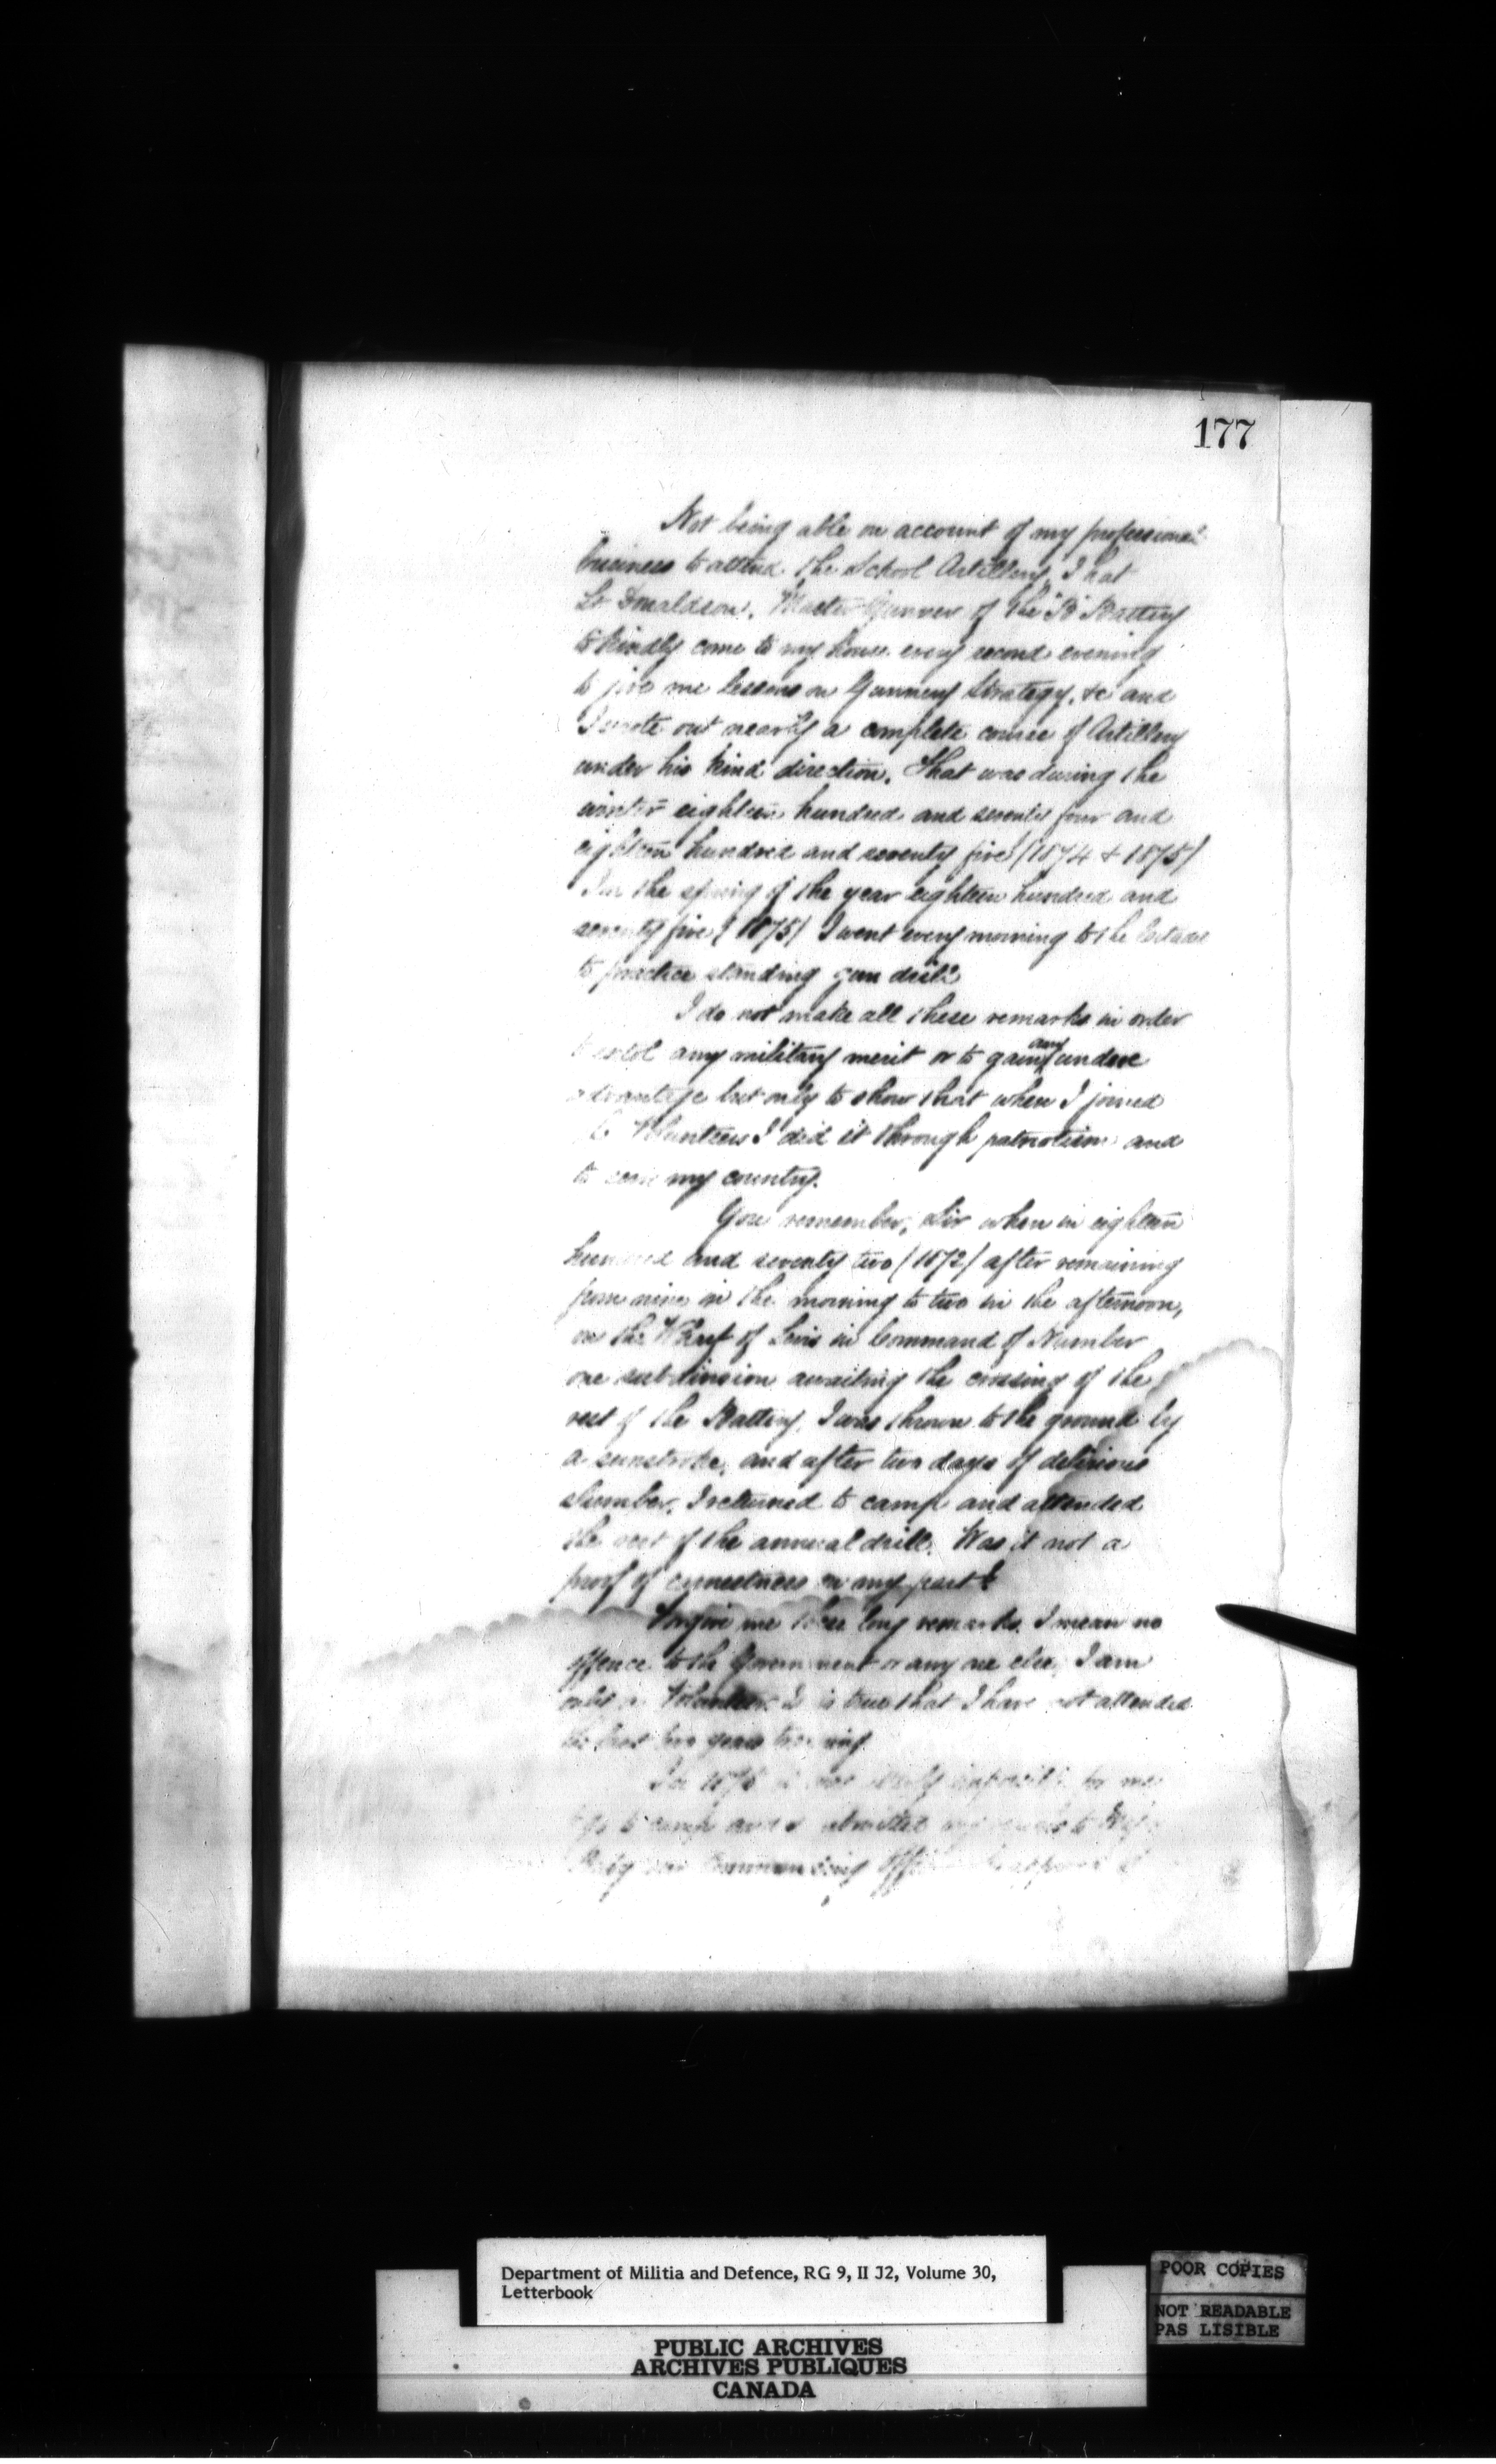 177
Not being able on account of my professional
business to attend the School Artillery, I hat
Lt Donaldson, Master Gunner of the "B" Battery
to kindly come to my house every second evening
to give me lessons on Gunnery Strategy, &c and
I wrote out nearly a complete course of Artillery
under his kind direction. That was during the
winter eighteen hundred and seventy four and
eighteen hundred and seventy five (1874 & 1875)
In the spring of the year eighteen hundred and
seventy five (1875) I went every morning to the
to practice standing gun drill
I do not make all these remarks in order
to extol any military merit or to gain any undue
advantage but only to show that when I joined
the Volunteers I did it through patriotism and
to serve my country.
You remember, Sir when in eighteen
hundred and seventy two (1872) after remaining
from nine in the morning to two in the afternoon,
on the Wharf of Levis in Command of Number
one subdivision awaiting the crossing of the
rest of the Battery, I was thrown to the ground by
a sunstroke, and after two days of delirious
slumber, I returned to camp and attended
the rest of the annual drill. Was it not a
proof of earnestness on my part?
Forgive me these long remarks. I mean no
offence to the Government or any one else, I am
only a Volunteer. It is true that I have not attended
the last two years training
In 1876 it was for me
to go to camp and to
commanding
Department of Militia and Defence, RG 9, II J2, Volume 30,
Letterbook
POOR COPIES
NOT READABLE
PAS LISIBLE
PUBLIC ARCHIVES
ARCHIVES PUBLIQUES
CANADA